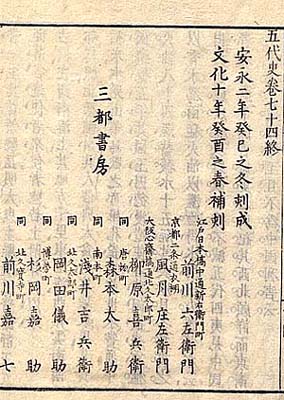 五代史卷七十四終
安永二年癸巳之冬刻成
文化十年癸酉之春補刻
三都書房
江戸日本橋中通新右衞門町
前川六左衞門
京都二条通衣棚
風月庄左衞門
大坂心齋橋通北久太郎町
柳原喜兵衞
同 唐物町
森本太助
同 南本町
淺井吉兵衞
同 北久太郎町
岡田儀助
同 博勞町
杉岡嘉助
同 北久寶寺町
前川嘉七